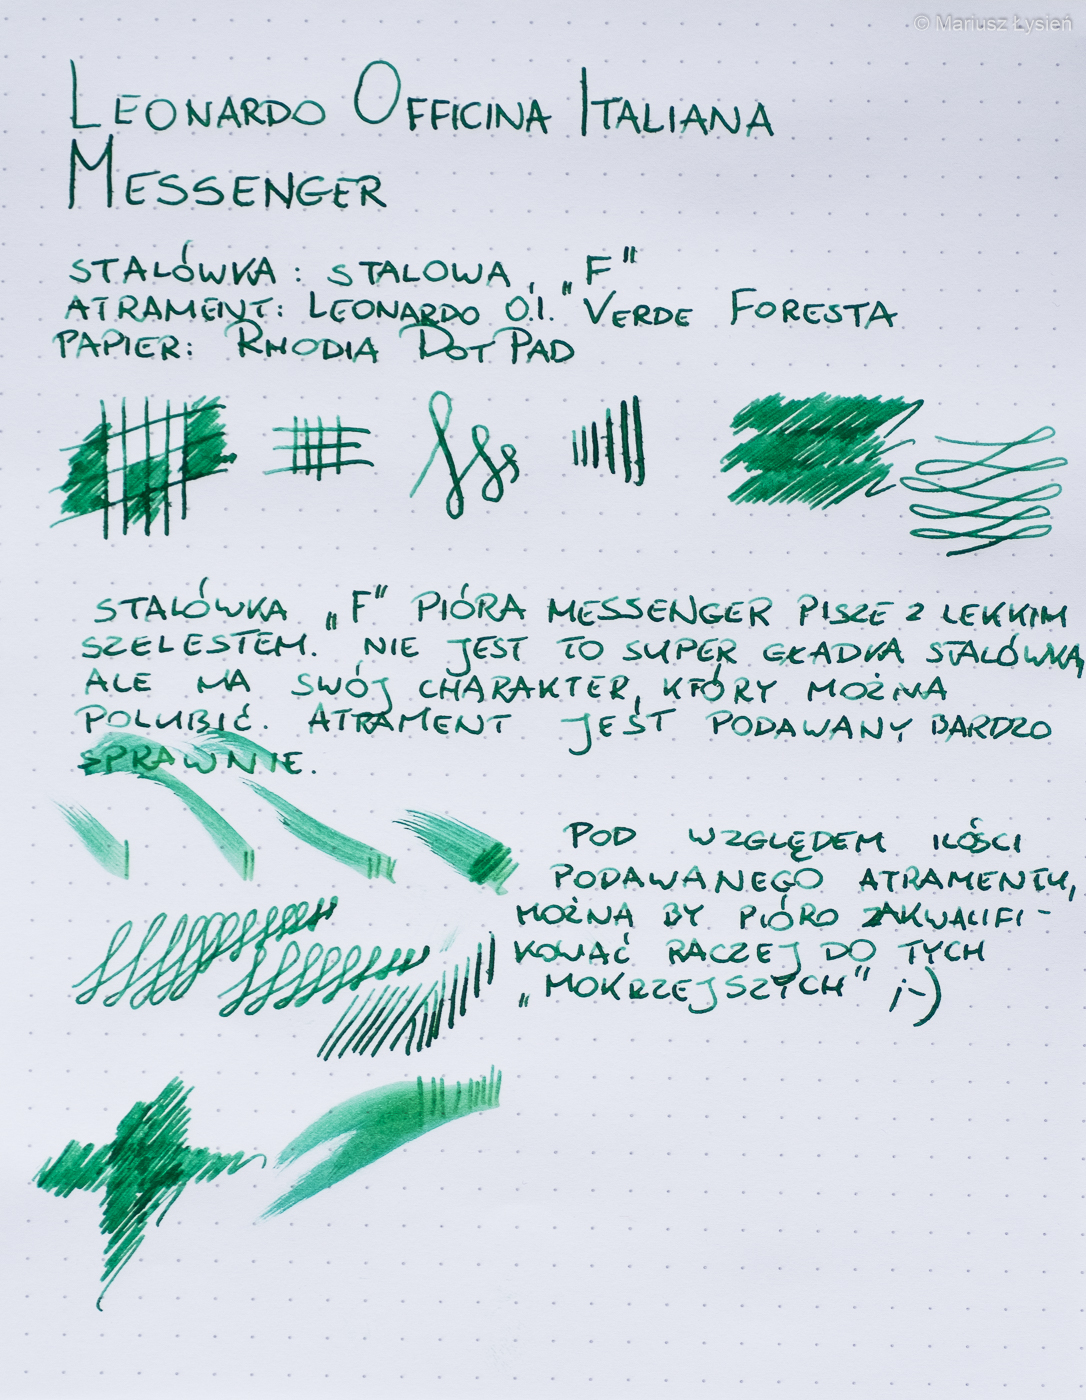 © Mariusz Łysień
Leonardo Officina Italiana
Messenger
STALÓWKA: STALOWA, „F"
ATRAMENT: LEONARDO O.I. "VERDE FORESTA
PAPIER: RHODIA DOT PAD
STALÓWKA „F" PIÓRA MESSENGER PISZE Z LEKKIM
SZELESTEM. NIE JEST TO SUPER GŁADKA STALÓWKA,
ALE MA SWÓJ CHARAKTER, KTÓRY MOŻNA
POLUBIĆ. ATRAMENT JEST PODAWANY BARDZO
SPRAWNIE.
POD WZGLĘDEM ILOŚCI
PODAWANEGO ATRAMENTU,
MOŻNA BY PIÓRO ZAKWALIFI-
KOWAĆ RACZEJ DO TYCH
„MOKRZEJSZYCH" ;-)